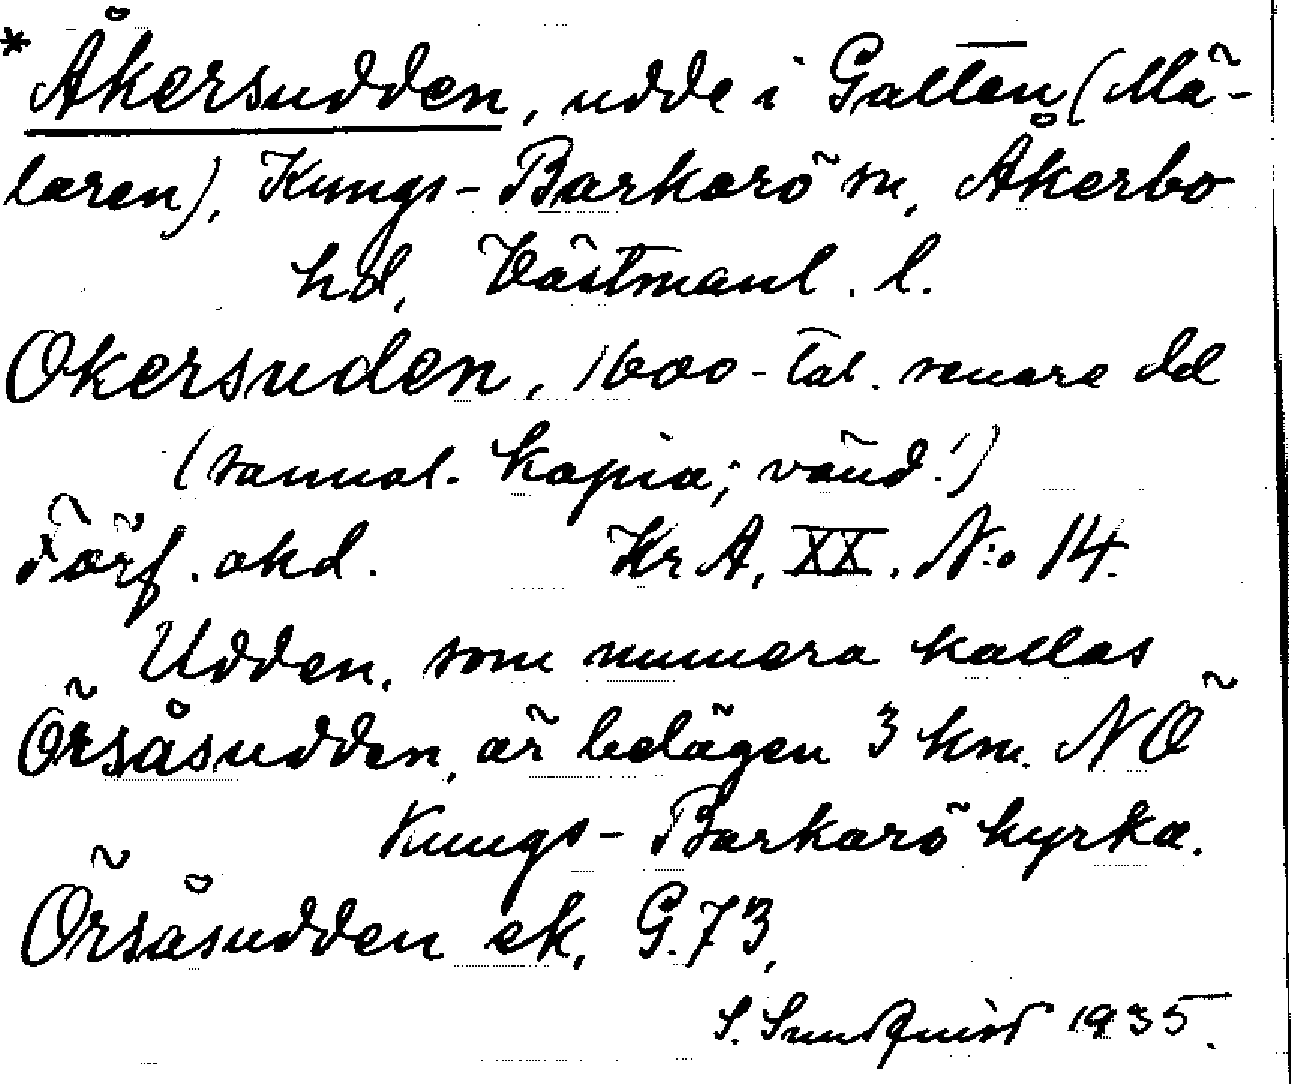 *Åkersudden, udde i Galten (Mä-
laren), Kungs-Barkarö sn, Åkerbo
hd, Västmanl. l.
Okersuden, 1600-tal. senare del
(samal. kopia; vänd!)
Förf. okd. Kr A, XX. N:o 14.
Udden, som numera kallas
Örsåsudden, är belägen 3 km. NÖ
Kungs-Barkarö kyrka.
Örsåsudden ek, G.73,
S. Sundquist 1935.